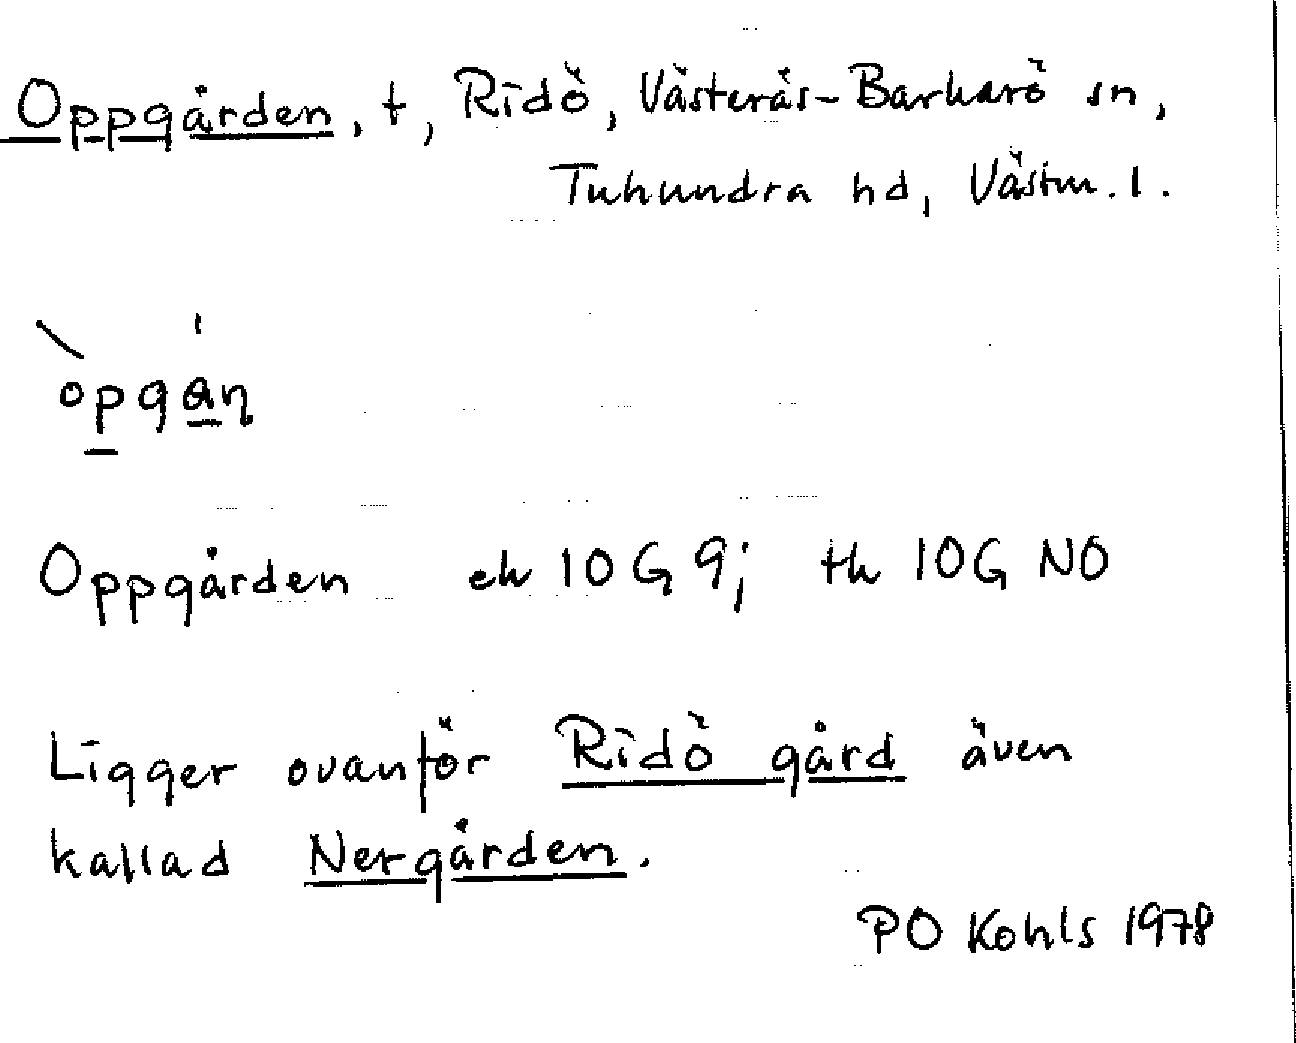 Oppgården, t, Ridö, Västerås-Barkarö sn,
Tuhundra hd, Västm. l.
Oppgården ek 10 G 9; tk 10G NO
Ligger ovanför Ridö gård även
kallad Nergården.
PO Kohls 1978